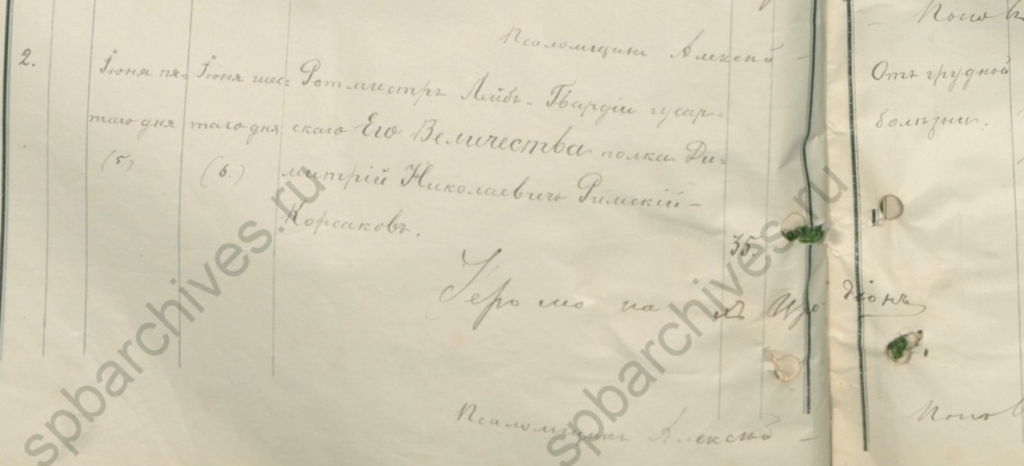 Псаломщикъ Алексѣй - Поповъ
2.
Іюня пя-
таго дня
(5)
Іюня шес-
таго дня
(6.)
Ротмистръ Лейбъ-Гвардіи гусар-
скаго Его Величества полка Ди-
митрій Николаевичъ Римскій-
Корсаковъ.
35.
Отъ грудной
болѣзни.
Іеромонахъ Иродіонъ
Псаломщикъ Алексѣй - Поповъ
spbarchives.ru
spbarchives.ru